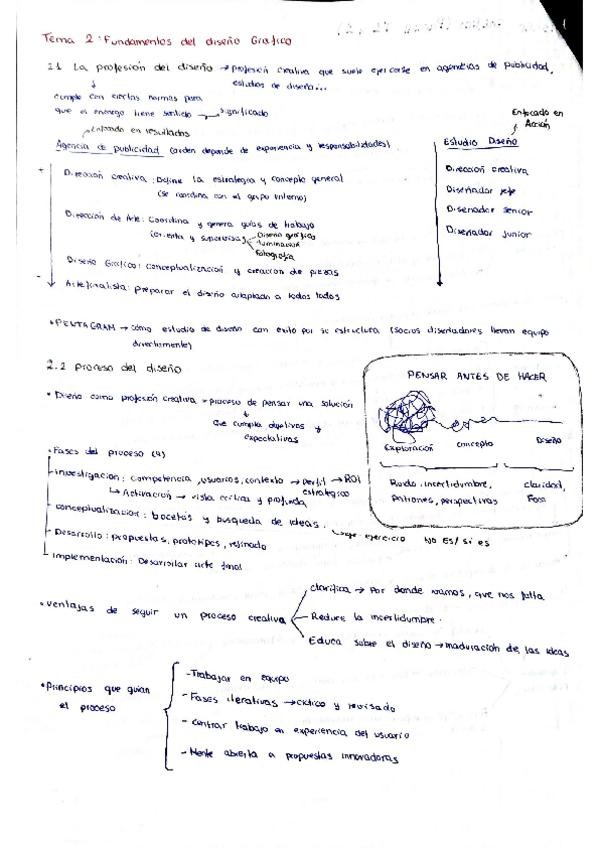 Tema 2: Fundamentos del diseño Grafico
2.1 La profesión del diseño → profesion creativa que suele ejercerse en agencias de publicidad,
estudios de diseño...
cumple con ciertas normas para
que el mensaje tiene sentido → significado
Enfocado en resultados
Agencia de publicidad (orden depende de experiencia y responsabilidades)
Enfocado en
Acción
Estudio Diseño
Dirección creativa: Define la estrategia y concepto general
(se coordina con el grupo interno)
Dirección de Arte: Coordina y genera guías de trabajo
(orienta y supervisa)
Diseño gráfico
iluminación
fotografía
Diseño Grafico: conceptualización y creación de piezas
Artefinalista: preparar el diseño adaptado a todos lados
Direccion creativa
Diseñador jefe
Diseñador senior
Diseñador junior
• PENTAGRAM → como estudio de diseño con exito por su estructura (socios diseñadores llevan equipo
directamente)
2.2 proceso del diseño
• Diseño como profesión creativa → proceso de pensar una solución
que cumpla objetivos y
expectativas
• Fases del proceso (4)
- Investigacion: competencia, usuarios, contexto → Perfil estrategico → ROI
↳ Activación → vista critica y profunda
- conceptualizacion: bocetos y busqueda de ideas. ejercicio NO ES/ si es
- Desarrollo: propuestas, prototipos, refinado
- Implementación: Desarrollar arte final
PENSAR ANTES DE HACER
Exploración concepto Diseño
Ruido, incertidumbre,
patrones, perspectivas
claridad,
Foco
• ventajas de seguir un proceso creativo
clarifica → Por donde vamos, que nos falta
Reduce la incertidumbre.
Educa sobre el diseño → maduración de las ideas
• Principios que guían
el proceso
- Trabajar en equipo
- Fases iterativas → ciclico y revisado
- Centrar trabajo en experiencia del usuario
- Mente abierta a propuestas innovadoras